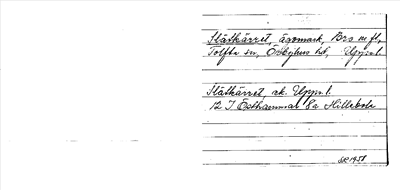 Slåtkärret, ägomark, Bro m fl,
Tolfta sn, Örbyhus hd, Uppsl.
Slåtkärret, ek. Uppsl.
12 I Östhammar 8a Hillebola
1951